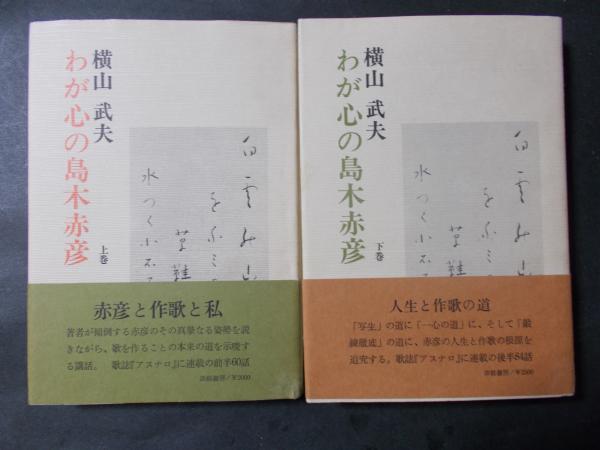 横山 武夫
わが心の島木赤彦
上巻
赤彦と作歌と私
著者が傾倒する赤彦のその真摯なる姿勢を説
きながら、歌を作ることの本来の道を示唆す
る講話。 歌誌『アスナロ』に連載の前半60話
/¥2000
横山 武夫
わが心の島木赤彦
下巻
人生と作歌の道
「写生」の道に「一心の道」に、そして「鍛
錬徹底」の道に、赤彦の人生と作歌の根源を
追究する。歌誌『アスナロ』に連載の後半84話
/¥2500